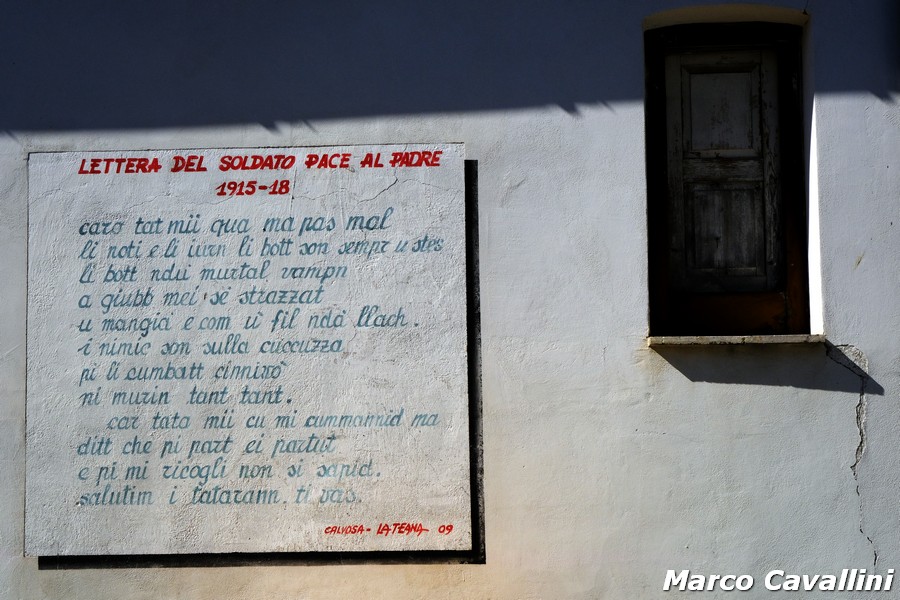 LETTERA DEL SOLDATO PACE AL PADRE
1915-18
caro tat mii qua ma pas mal
li noti e li iurn li bott son sempr u stes
li bott ndu murtal vampn
a giubb mei se strazzat
u mangia e com u fil nda llach.
i nimic son sulla cuccuzza
pi li cumbatt cinniro
ni murin tant tant.
car tata mii cu mi cummannid ma
ditt che pi part ei partut
e pi mi ricogli non si sapid.
salutim i tatarann. ti vas.
CALVOSA - LA TEANA 09
Marco Cavallini